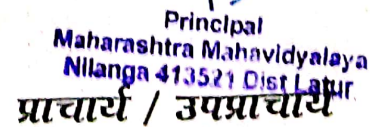 Principal
Maharashtra Mahavidyalaya
Nilanga 413521 Dist Latur
प्राचार्य / उपप्राचार्य